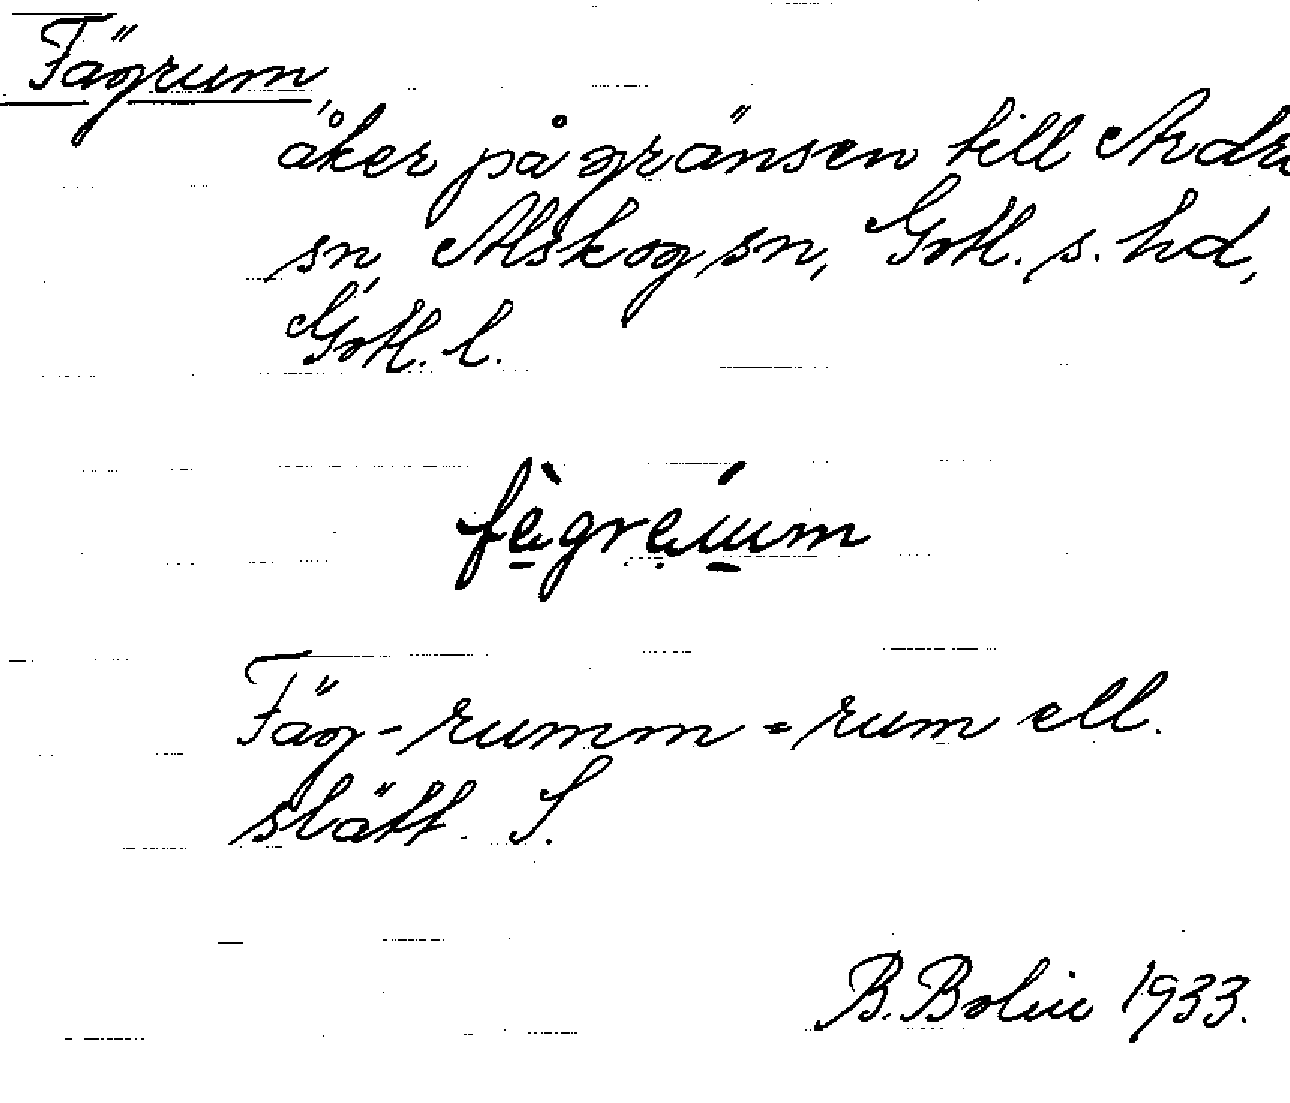 Fägrum,
åker på gränsen till Ardre
sn, Alskog sn, Gotl. s. hd,
Gotl. l.
Fäg-rumm = rum ell.
slätt. S.
B. Bolin 1933.